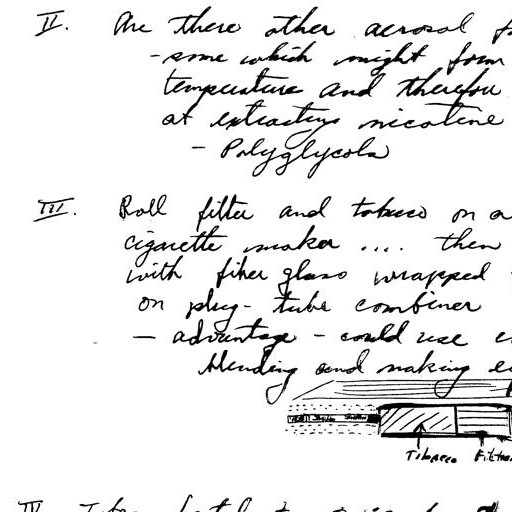 II. Are there other aerosol
- some which might form
temperature and therefore
at extracting nicotine
- Polyglycols
III. Roll filter and tobacco on a
cigarette maker .... then
with fiber glass wrapped
on plug-tube combiner
- advantage - could use
blending and making
Tobacco Filter
IV.